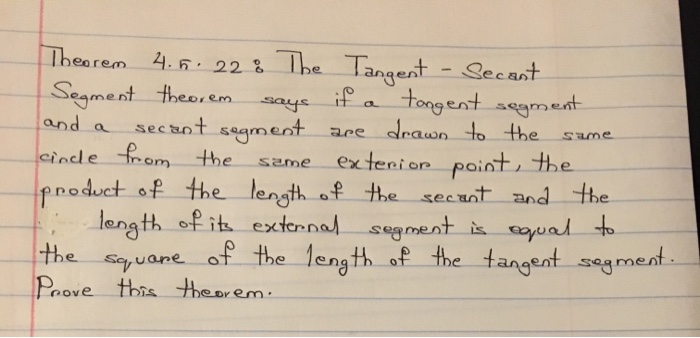 Theorem 4.5.22: The Tangent - Secant
Segment theorem says if a tangent segment
and a secant segment are drawn to the same
circle from the same exterior point, the
product of the length of the secant and the
length of its external segment is equal to
the square of the length of the tangent segment.
Prove this theorem.